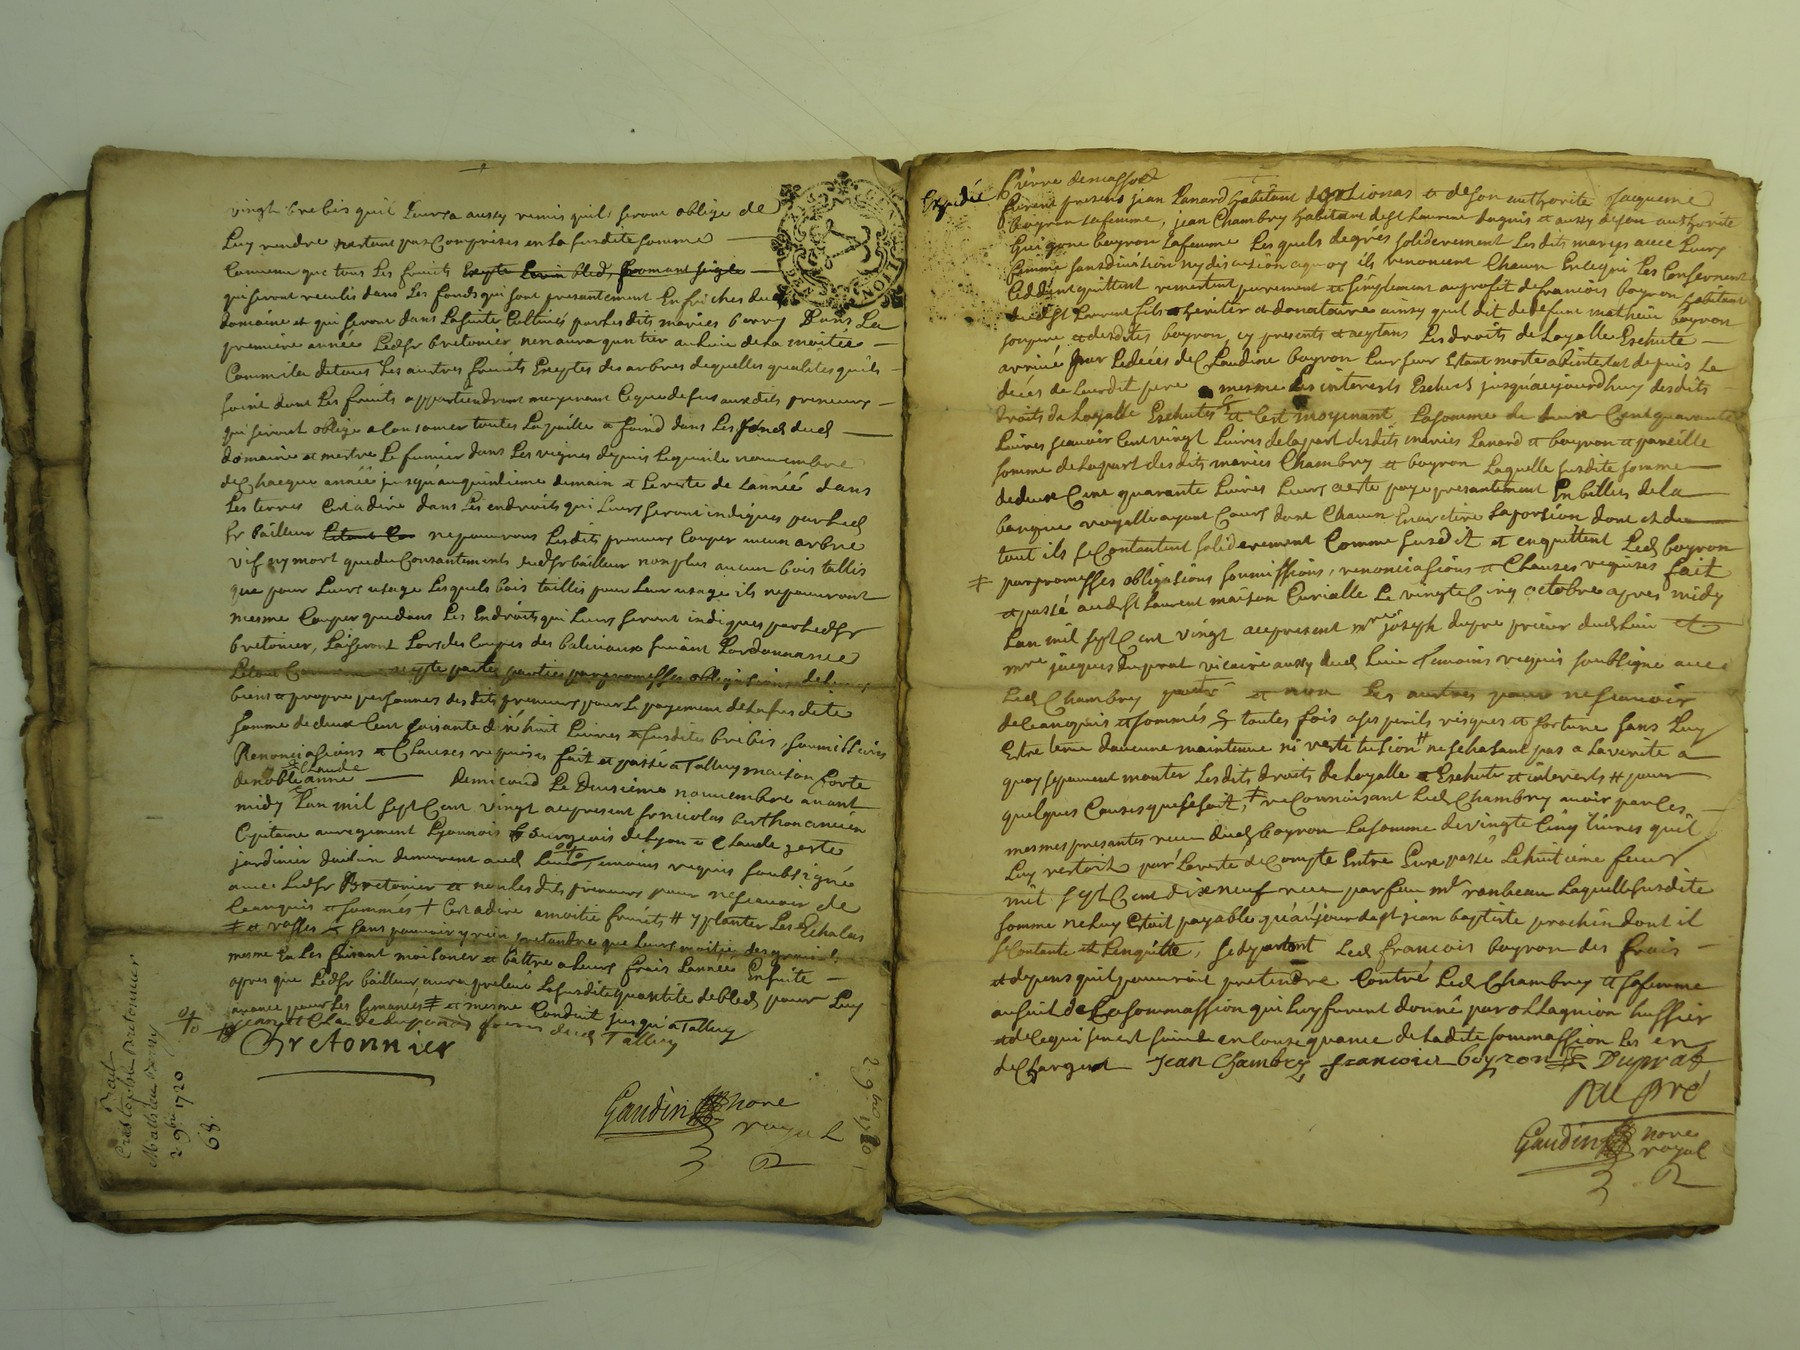 vingt brebis quil Leurs a aussy remis quils seront oblige de
Luy rendre nestant pas Comprises en La susditte somme
Comme que tous Les fruits
qui seront receulis dans Les fonds qui sont presantement En friches dud
domaine et qui seront dans La suitte Cultives par Lesdits maries berry Dans La
premiere année Ledsr bretonier nen aura qun tier au Lieu de La moitiée
Comme La de tous Les autres fruits Exeptes des arbres dequelles qualités quils
soint dont Les fruits appartiendront moyenant Ce que dessus auxdits preneurs
qui seront oblige a Consomer toutes La paille et foind dans Les fonds dud
domaine et mettre Le fumier dans Les vignes depuis Le novembre
de Chaeque année jusqu'au quinsieme de et Le reste de Lannée dans
Les terres Cest a dire dans Les endroits qui Leurs seront indiqués par Led
sr bailleur ne pouront Lesdits preneurs Couper aucun arbre
vif ny mort que du Consantements dudsr bailleur non plus aucun bois tallis
que pour Leurs usage Lesquels bois taillis pour Leur usage ils ne pouront
mesme Couper que dans Les Endroits qui Leurs seront indiques par Ledsr
bretonier, Laisseront Lors des Coupes des baliveaux suivant Lordonnance
par promesses obligasions de Leurs
biens et propre personnes desdits preneurs pour Le payement de La susditte
somme de deux Cent soisante dixhuit Livres et susdites brebis, soumissions
Renonciasions et Clauses requises fait et passé a Talluy maison forte
de noble Claude anne demicoud Le Deusieme novembre avant
midy Lan mil sept Cent vingt au present sr nicolas berthon ancien
Capitaine au regement Lyonnois bourgeois de Lyon et Claude
jardinier dud lieu demeurant aud Lieu temoins requis soubsigné
avec Ledsr Bretonier et non Lesdits preneurs pour ne scavoir de
Ce enquis et sommés + Cest a dire a moitié fruits # y planter Les Echalas
sans pouvoir y rien pretandre que Leurs moitié des
mesme En Les faisant moisoner et battre a Leurs frais Lannee Ensuite
apres que Ledsr bailleur aura prelevé La susditte quantité de bled pour Luy
avancé pour Les semances et mesme Conduit jusqu'a Talluy
Claude dud Talluy
Bretonnier
Gaudin nore
royal
2 9bre 1720
Bail
Cristophe Bretonnier
Mathieu Berry
2 9bre 1720
68
Expedié
Pierre
furent presens jean Panard habitant de et de son authorité Jacqueme
boyron sa femme, jean Chambry habitant de st Laurent dagnis et aussy de son authorité
boyron sa femme Lesquels de grés soliderement Lesdits maryés avec Leurs
femme sans division ny discusion a quoy ils renoncent Chacun En Ce qui Les Consernent
Ceddent quittent remettent purement et simplement au profit de francois boyron habitant
dudst Laurent fils heritier et donataire ainsy quil dit de defunt mathieu boyron
son pere et desdites boyron, cy presents et aceptans Les droits de Loyalle Escheute
arrivé par Le decés de Claudine boyron Leur seur Estant morte abintestat depuis Le
décés de Leurdit pere mesme Les interests Escheus jusqu'aujourdhuy desdits
droits de Loyalle Escheutes et Cest moyenant La somme de deux Cent quarante
Livres scavoir Cent vingt Livres de La part desdits maries Panard et boyron et pareille
somme de La part desdits maries Chambry et boyron Laquelle susdite somme
de deux Cent quarante Livres Leurs a esté payé presantement En billets de La
banque royalle ayant Cours dont Chacun En a retiré La porsion dont et du
tout ils se Contantent soliderement Comme susdit et en quittent Led boyron
par promesses obligasions soumissions, renonciasions et Clauses requises fait
et passé audst Laurent maison Curialle Le vingt Cinq octobre apres midy
Lan mil sept Cent vingt au present mre joseph dupre prieur dud Lieu et
mre jacques duprat vicaire aussy dud Lieu temoins requis soubsigne avec
Led Chambry et non Les autres pour ne scavoir
de Ce enquis et sommés toutes fois a ses perils risques et fortune sans Luy
Estre tenu daucune maintenue ni restitusion # ne se hasant pas a La verité a
quoy peuvent monter Lesdits droits de Loyalle Escheute et interests # pour
quelques Causes que se soit, reConnoisant Led Chambry avoir par Ces
mesmes presantes receu dud boyron La somme de vingt Cinq Livres quil
Luy restoit par La resté de Compte Entre Eux passé Le huit ieme
mil sept Cent dixneuf receu par feu me ranbeau Laquelle susdite
somme ne Luy Estoit payable qu'au jour de st jean baptiste prochin dont il
se Contente et Len quitte, se departant Led francois boyron des frais
et depens quil pourroit pretendre Contre Led Chambry et sa femme
au suit de La sommassion qui Luy furent donné par Lagnion hussier
et de Ce qui sen est suivi en Consequance de La dite sommassion Les en
de Chargent Jean Chambry francois boyron Duprat
Dupré
Gaudin nore
royal